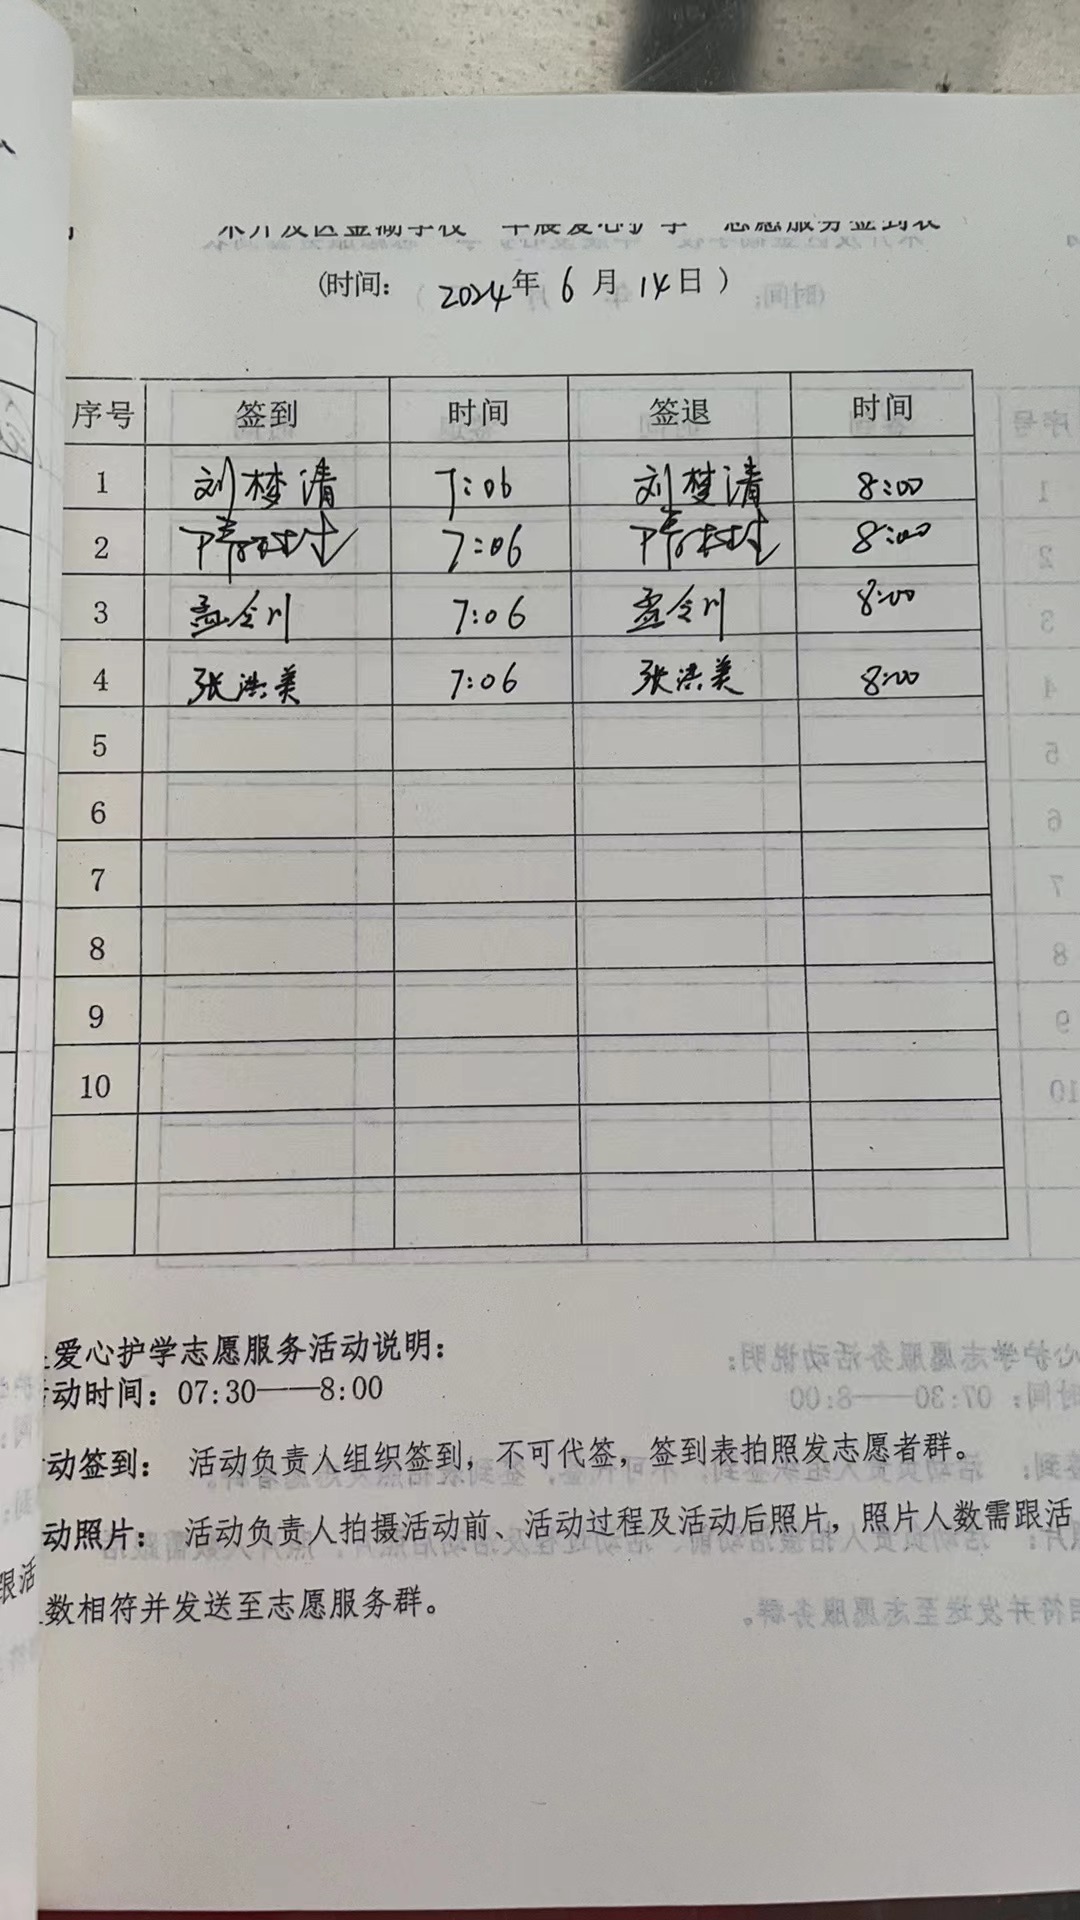 术开发区金湖学校“早晨爱心护学”志愿服务签到表
(时间: 2024年 6 月 14日 )
序号 签到 时间 签退 时间
1 刘梦清 7:06 刘梦清 8:00
2 7:06 8:00
3 孟令川 7:06 孟令川 8:00
4 张洪美 7:06 张洪美 8:00
5
6
7
8
9
10
爱心护学志愿服务活动说明:
动时间: 07:30——8:00
动签到: 活动负责人组织签到, 不可代签, 签到表拍照发志愿者群。
动照片: 活动负责人拍摄活动前、活动过程及活动后照片, 照片人数需跟活
数相符并发送至志愿服务群。
跟活